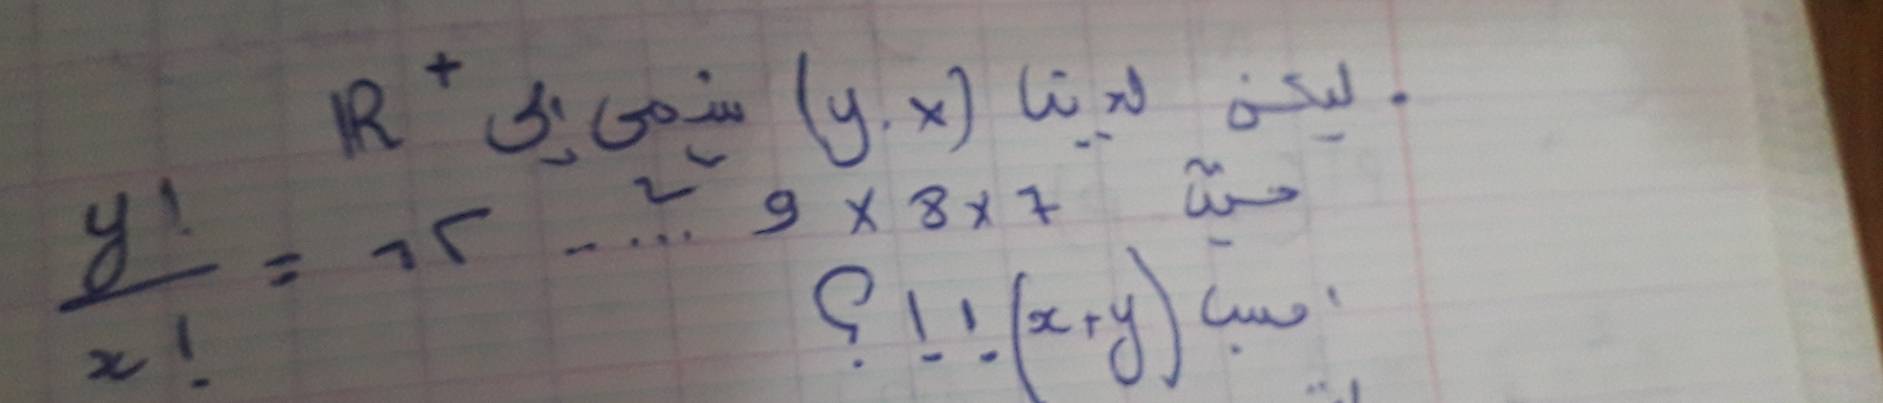 . ليكن لدينا (y.x) ينتمي إلى R⁺
حيث 7 × 8 × 9 ....
y!/x! =
احسب (x+y)!! ؟